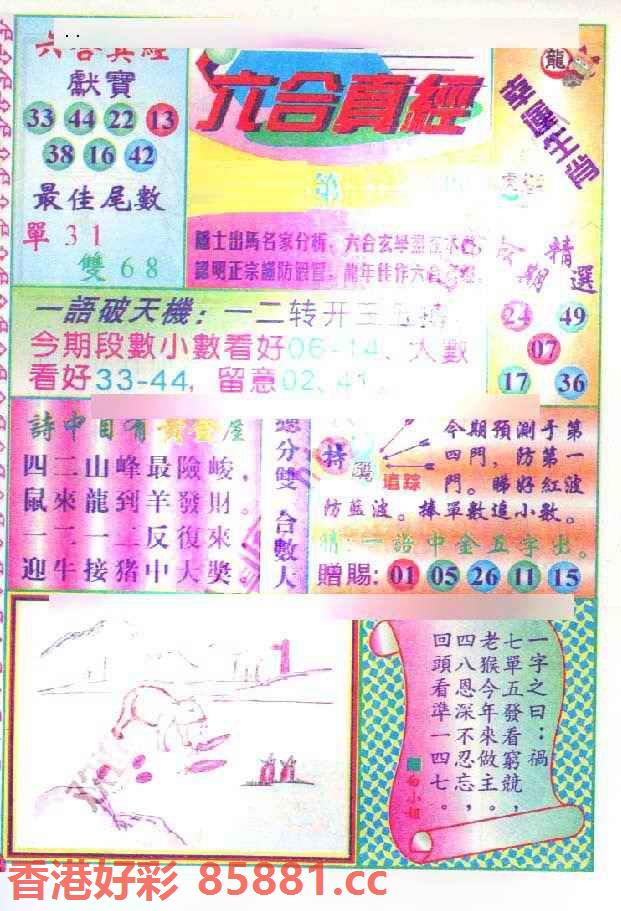 六合真經
獻寶
33 44 22 13
38 16 42
最佳尾數
單31
雙68
六合真經
龍
隱士出馬名家分析，六合玄學盡在本
認明正宗謹防假冒，龍年佳作六合
期精選
24 49
07
17 36
一語破天機：一二转开三五
今期段數小數看好06-14、大數
看好33-44，留意02、41。
詩中自有黃金屋
四二山峰最險峻，
鼠來龍到羊發財。
一二一二反復來
迎牛接猪中大獎。
總分雙 合數大
特
追踪
今期預測于第
四門，防第一
門。睇好紅波
防藍波。捧單數追小數。
猜：一語中金五字出。
贈賜：01 05 26 11 15
1
一字之曰：禍
七單五發看窮競，
老猴今年來做主。
四八恩深不忍忘，
回頭看準一四七。
白小姐
香港好彩 85881.cc